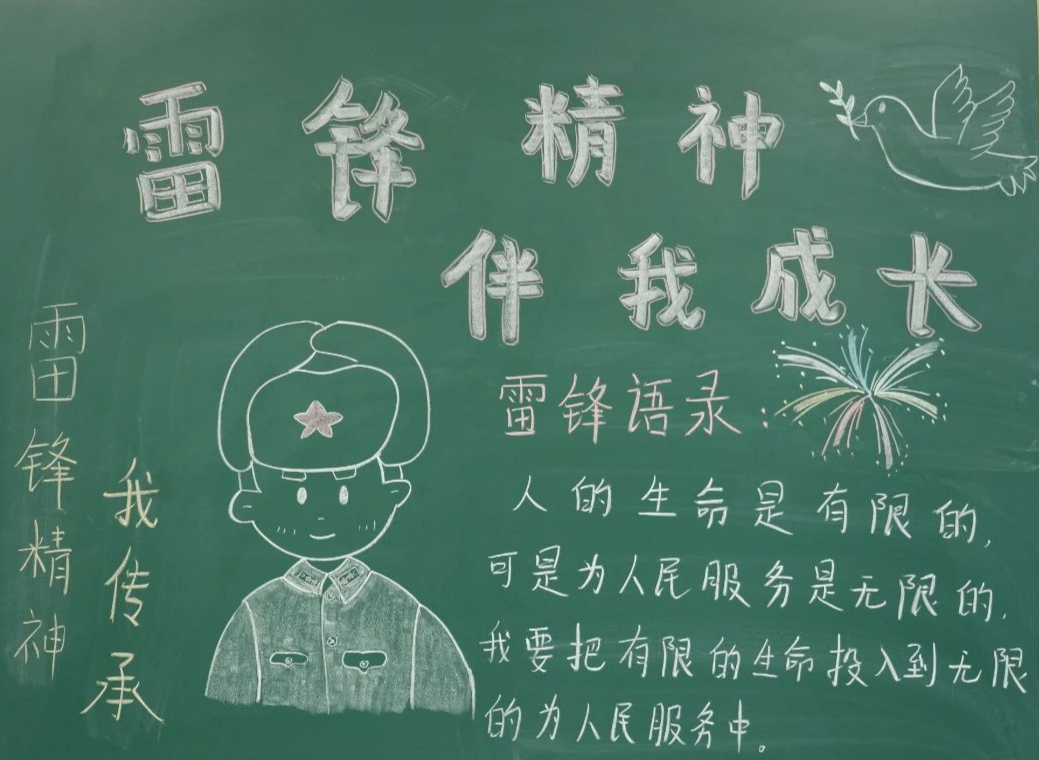 雷锋精神
伴我成长
雷锋精神
我传承
雷锋语录:
人的生命是有限的,
可是为人民服务是无限的,
我要把有限的生命投入到无限
的为人民服务中。